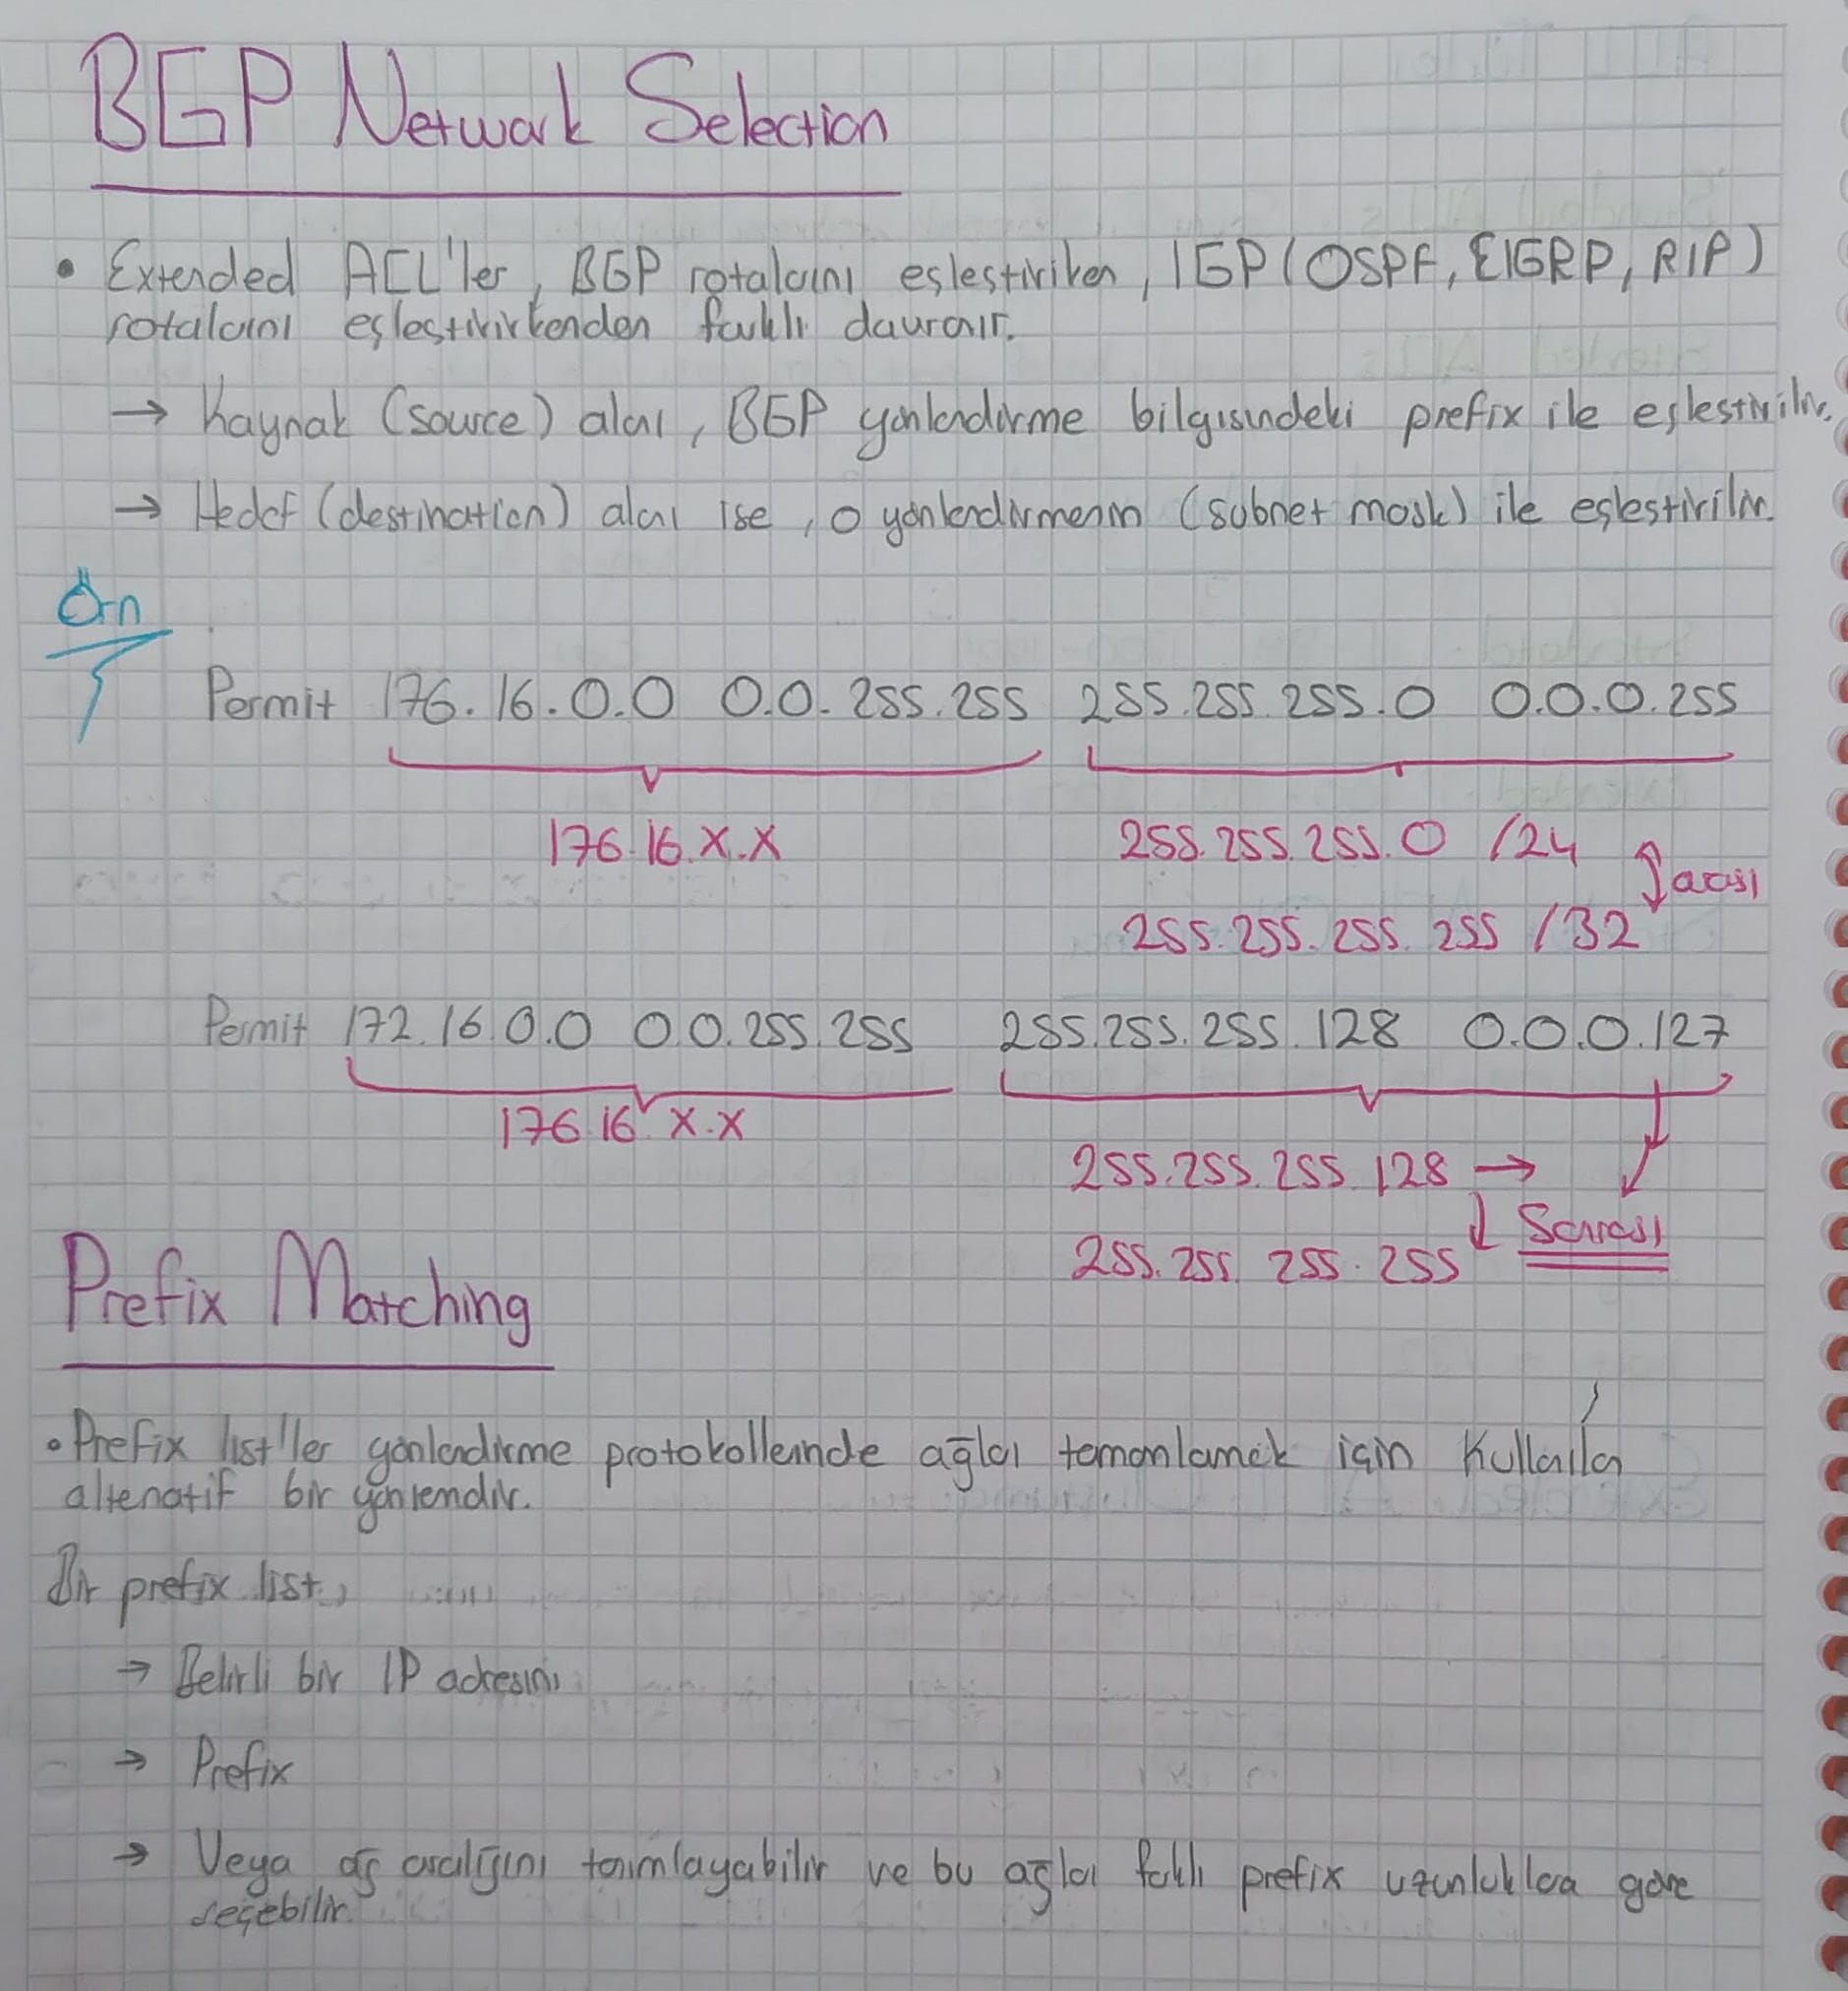 BGP Network Selection
• Extended ACL'ler, BGP rotalarını eşleştiriken, IGP (OSPF, EIGRP, RIP)
rotalarını eşleştirirkenden farklı davranır.
→ Kaynak (source) alanı, BGP yönlendirme bilgisindeki prefix ile eşleştirilir.
→ Hedef (destination) alanı ise, o yönlendirmenin (subnet mask) ile eşleştirilir.
Örn
Permit 176.16.0.0 0.0.255.255 255.255.255.0 0.0.0.255
176.16.X.X 255.255.255.0 /24
arası
255.255.255.255 /32
Permit 172.16.0.0 0.0.255.255 255.255.255.128 0.0.0.127
176.16.X.X
255.255.255.128 →
↓ Sonrası
255.255.255.255
Prefix Matching
• Prefix list'ler yönlendirme protokollerinde ağları tanımlamak için kullanılan
altenatif bir yöntemdir.
Bir prefix list,
→ Belirli bir IP adresini
→ Prefix
→ Veya ağ aralığını tanımlayabilir ve bu ağları farklı prefix uzunluklara göre
seçebilir.